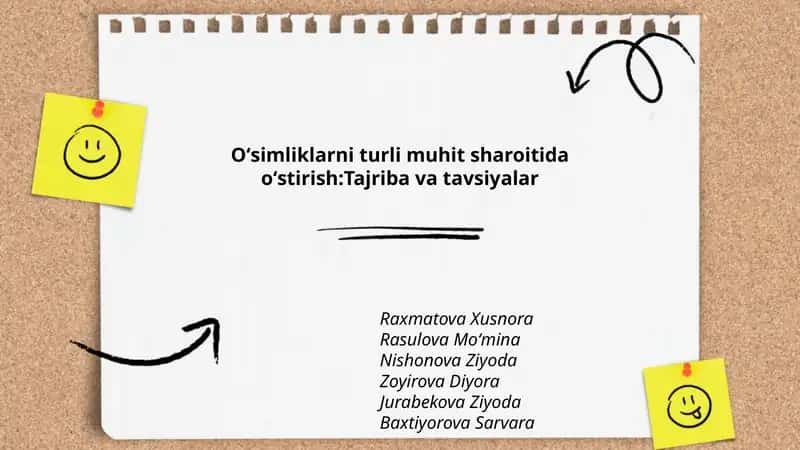 O‘simliklarni turli muhit sharoitida
o‘stirish:Tajriba va tavsiyalar
Raxmatova Xusnora
Rasulova Mo‘mina
Nishonova Ziyoda
Zoyirova Diyora
Jurabekova Ziyoda
Baxtiyorova Sarvara